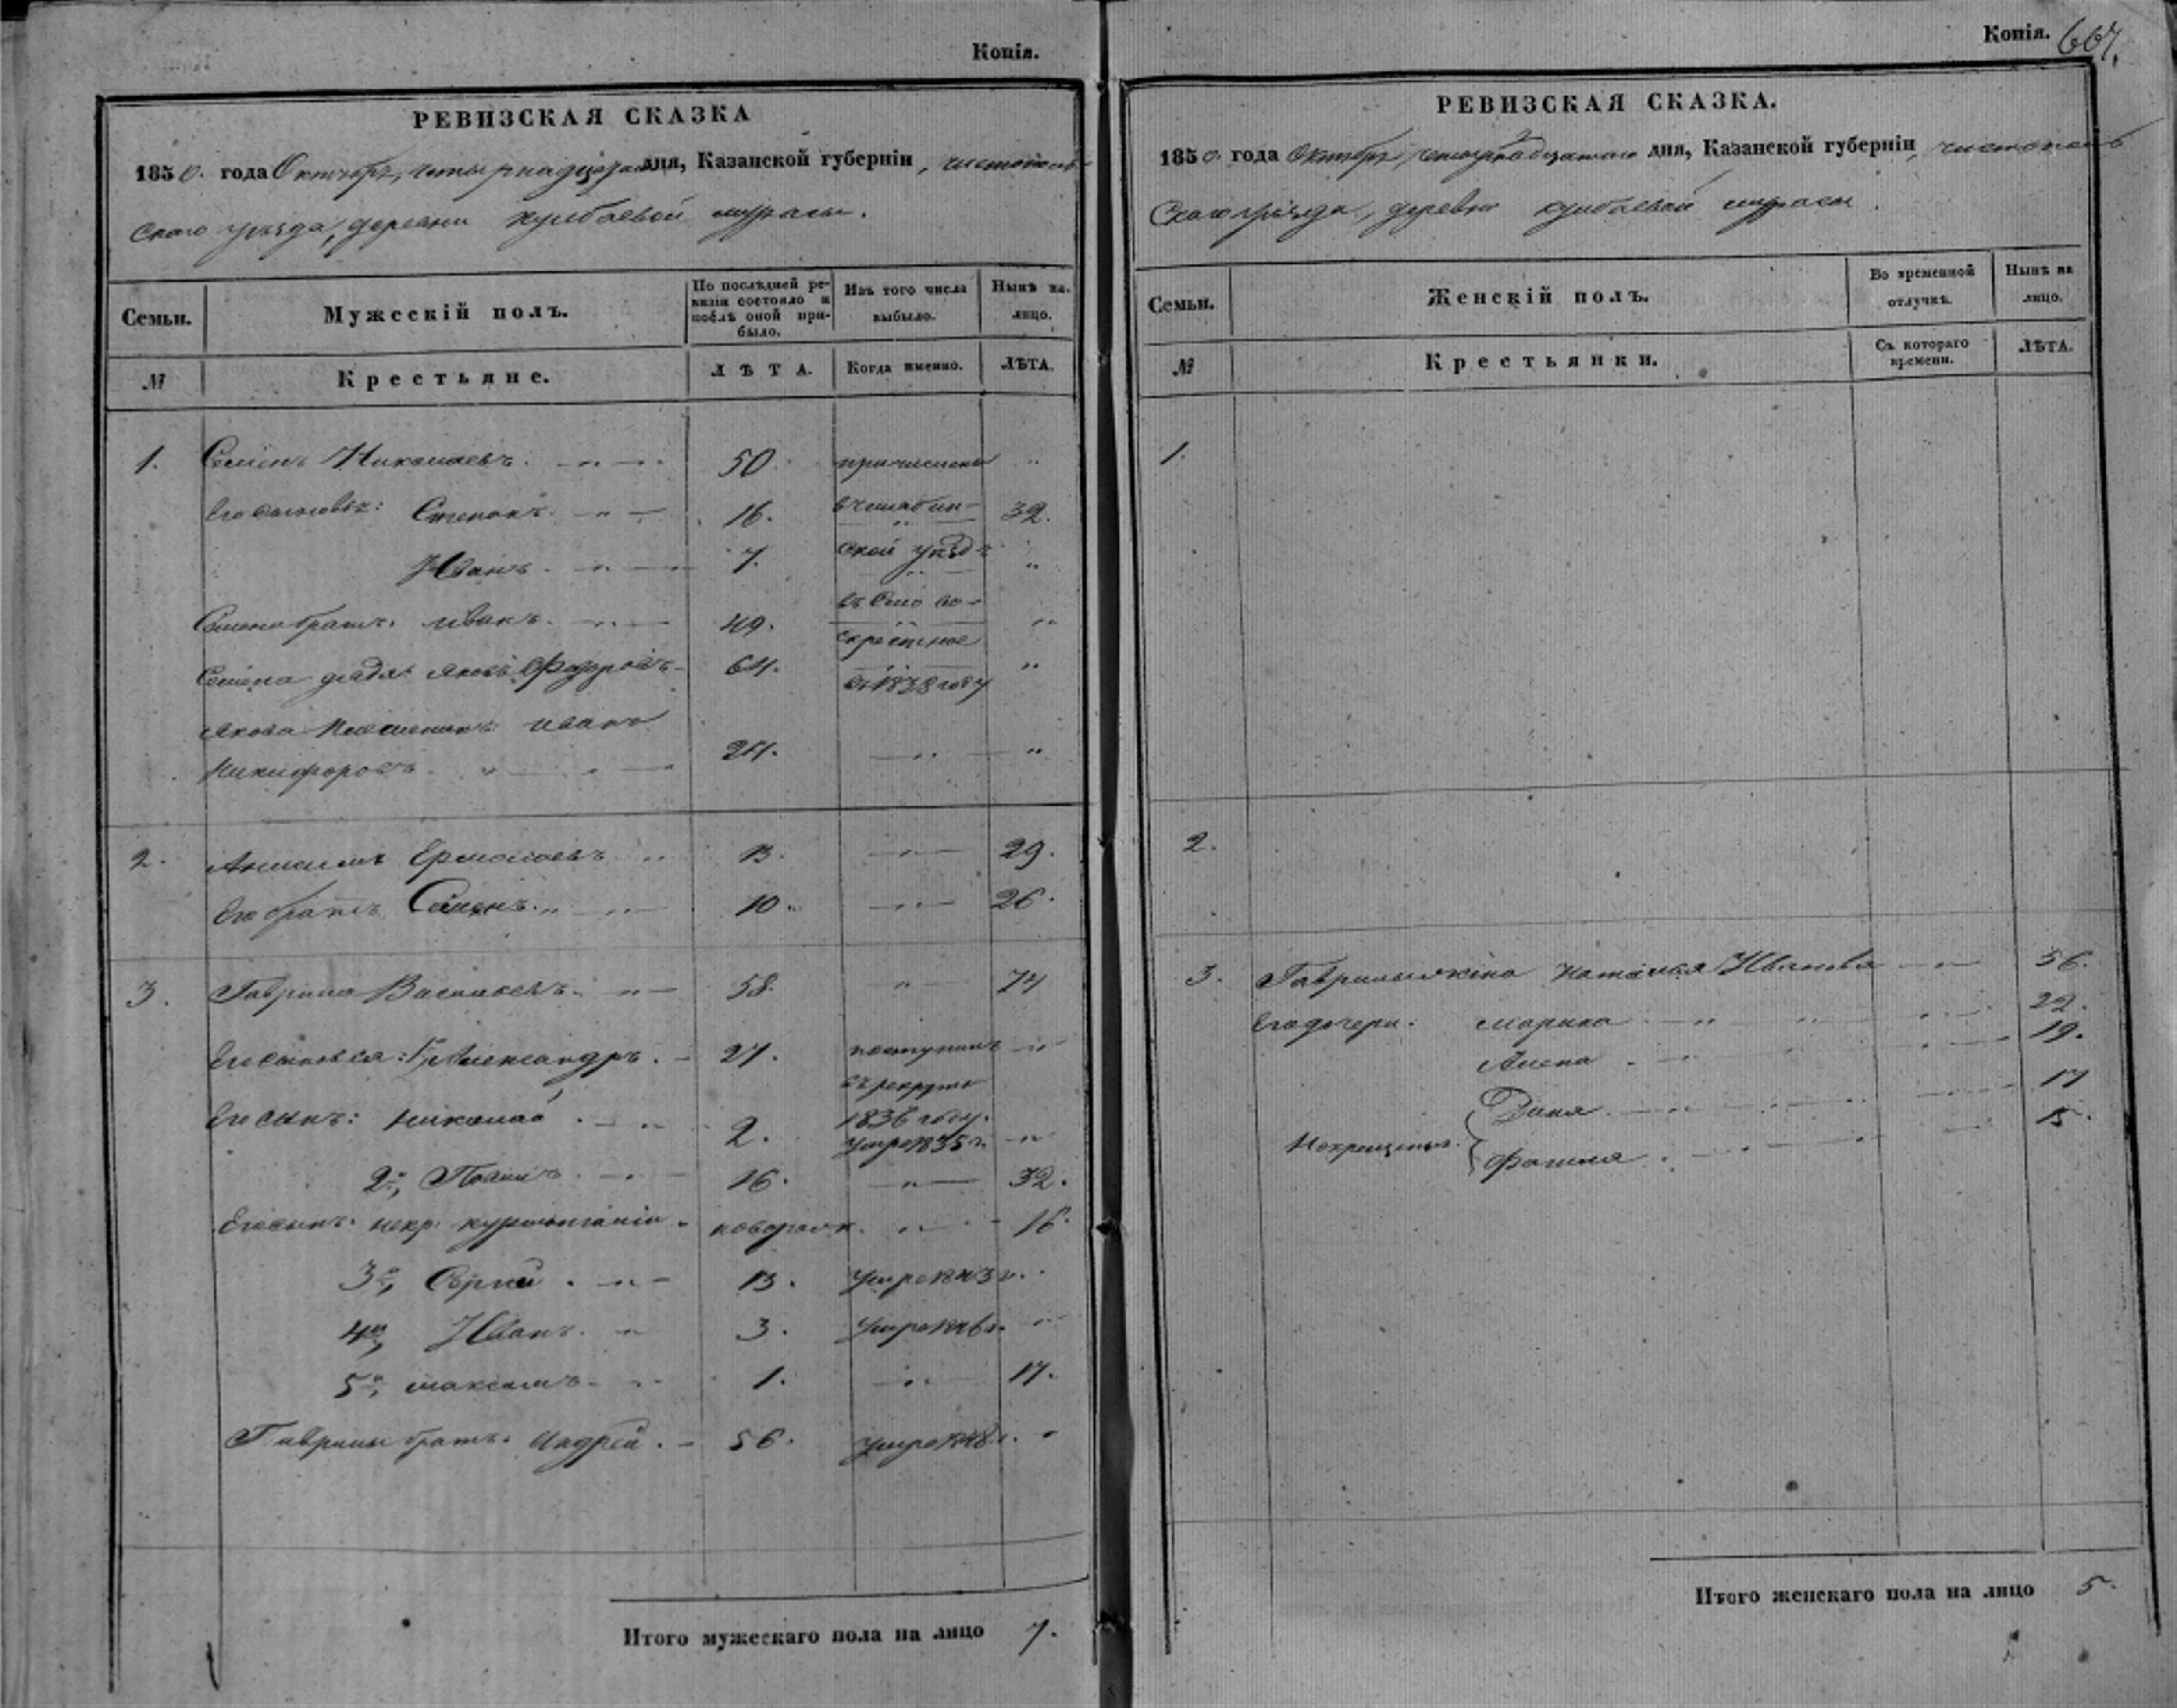 Копія.
РЕВИЗСКАЯ СКАЗКА
1850. года Октября, четырнадцатаго дня, Казанской губерніи, чистополь-
скаго уѣзда, деревни кулбаевой мурасы.
Семьи. Мужескій полъ. По послѣдней ре-визіи состояло и послѣ оной при-было. Изъ того числа выбыло. Нынѣ на-лицо.
№ Крестьяне. ЛѢТА. Когда именно. ЛѢТА.
1. Семенъ Николаевъ. 50. причислены "
Его сыновья: Степанъ. 16. в челябин- 32.
Иванъ. 7. ской уѣздъ "
Семена братъ. Иванъ. 49. въ село во- "
скресенское
Семена дядя Яковъ Федоровъ 64. въ 1838 году "
Якова племянникъ Иванъ
Никифоровъ. 24. "
2. Ермолаевъ 13. " 29.
Его братъ Семенъ. 10. " 26.
3. Гаврила Васильевъ. 58. " 74
Его сыновья: 1й Александръ. 27. поступилъ "
въ рекруты
Его сынъ: Николай 2. 1836 году. умре 1835 г. "
2й, 16. " 32.
Его сынъ: некр. новорожд. " 16.
3й, Сергій 13. умре 1843 г.
4й, Иванъ. 3. умре 1846 г. "
5й, максимъ 1. " 17.
Гаврилы братъ. Андрей. 56. умре 1848 г. "
Итого мужескаго пола на лицо 7.
Копія. 667.
РЕВИЗСКАЯ СКАЗКА.
1850. года Октября четырнадцатаго дня, Казанской губерніи, чистополь
скаго уѣзда, деревни кулбаевой мурасы.
Семьи. Женскій полъ. Во временной отлучкѣ. Нынѣ на лицо.
№ Крестьянки. Съ котораго времени. ЛѢТА.
1.
2.
3. Гаврилы жена Наталья Иванова " 56.
Его дочери: марина " 22.
Алена 19.
Дина 17
Некрещеныя 15.
Итого женскаго пола на лицо 5.